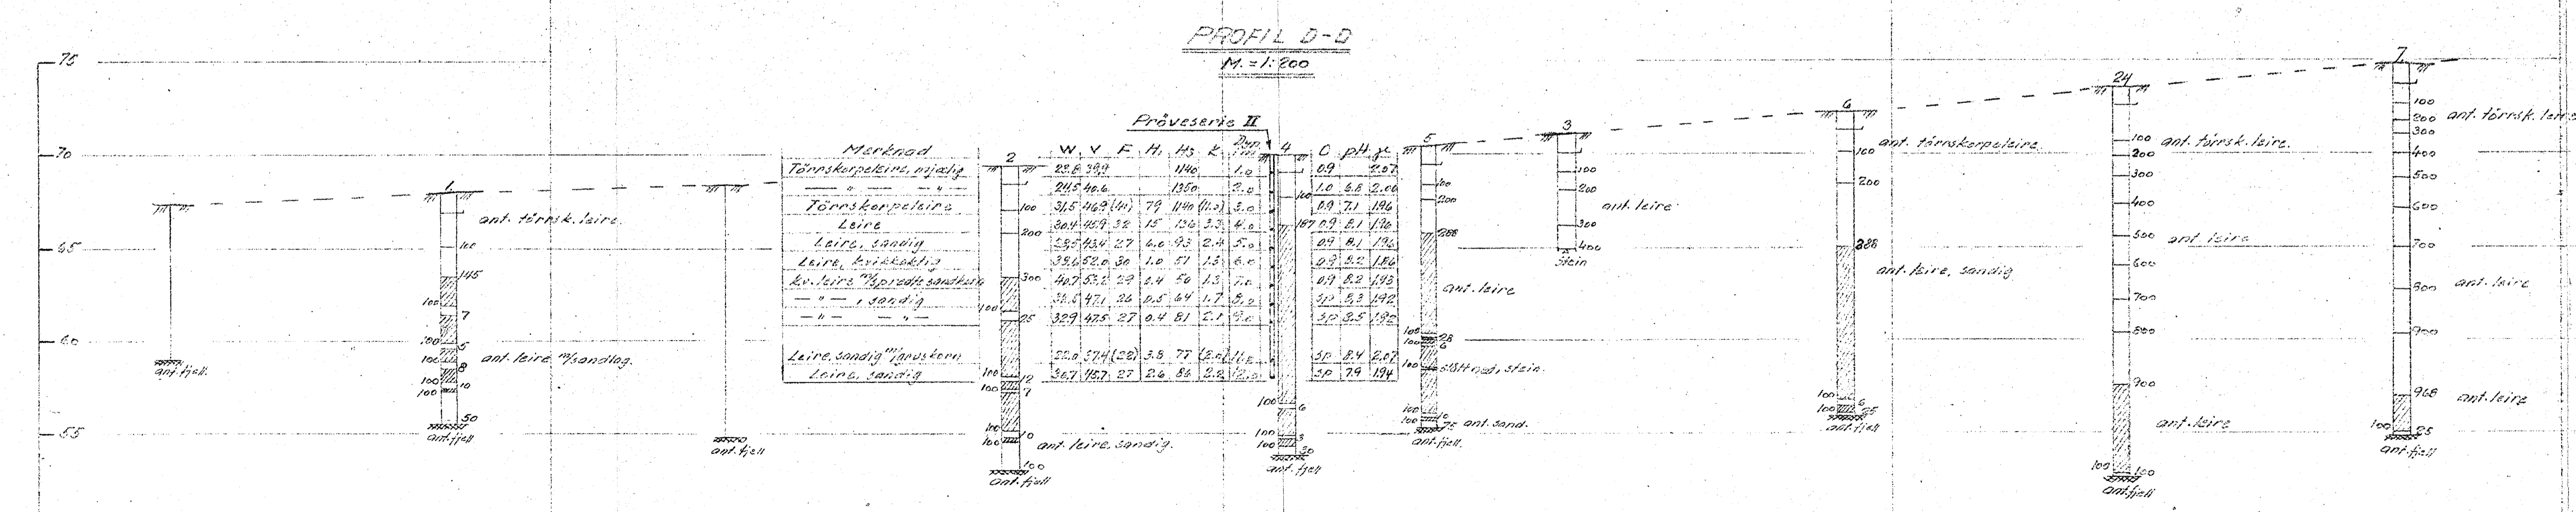 PROFIL D-D
M. = 1:200
75
70
65
60
55
ant. fjell.
1
ant. törrsk. leire
100
145
100
7
100
5
100
8
100
10
100
50
ant. leire m/sandlag.
ant. fjell
ant. fjell
Pröveserie II
Merknad W V F H₁ H₃ k Dyp i m C pH γ
Törrskorpeleire, mjælig 23.8 39.9 1140 1.0 0.9 2.07
— " — — " — 24.5 40.6 1350 2.0 1.0 6.8 2.06
Törrskorpeleire 31.5 46.9 (41) 79 1140 3.0 0.9 7.1 1.96
Leire 30.4 45.9 32 15 136 3.3 4.0 0.9 8.1 1.96
Leire, sandig 43.4 27 6.0 93 2.4 5.0 0.9 8.1 1.96
Leire, kvikkaktig 52.0 30 1.0 51 1.3 6.0 0.9 8.2 1.86
kv. leire m/spredte sandkorn 40.7 53.2 29 0.4 50 1.3 7.0 0.9 8.2 1.93
— " — , sandig 47.1 26 0.5 64 1.7 8.0 sp 8.3 1.92
— " — — " — 32.9 47.5 27 0.4 81 2.1 9.0 sp 8.5 1.92
Leire, sandig m/gruskorn 22.0 37.4 (22) 3.8 77 (2.0) 11.0 sp 8.4 2.07
Leire, sandig 30.7 45.7 27 2.6 86 2.2 12.0 sp 7.9 1.94
2
100
200
300
100
25
100
12
100
7
100
10
100
100
ant. leire, sandig.
ant. fjell
4
100
187
100
6
100
3
100
30
ant. fjell
5
100
200
288
ant. leire
100
28
100
6
100
slått ned, stein.
100
10
100
75
ant. sand.
ant. fjell.
3
100
200
ant. leire
300
400
stein
6
100
ant. törrskorpeleire.
200
288
ant. leire, sandig
100
6
100
25
ant. fjell
24
100
ant. törrsk. leire.
200
300
400
500
ant. leire
600
700
800
900
ant. leire
100
100
ant. fjell
7
100
200
ant. törrsk. leire
300
400
500
600
700
800
ant. leire
900
968
ant. leire
100
25
ant. fjell